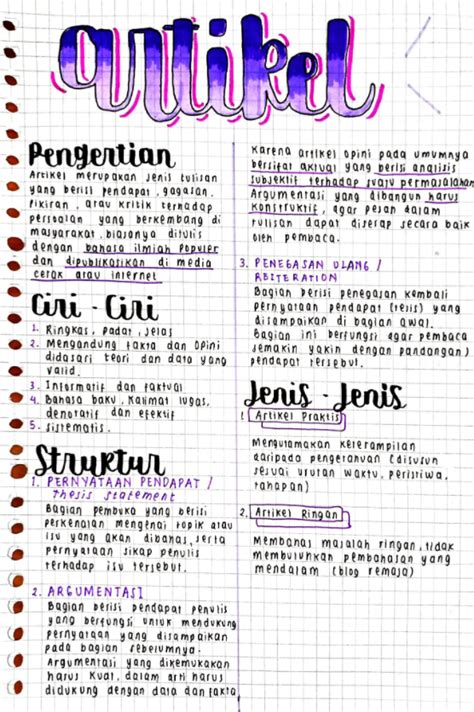 artikel
Pengertian
Artikel merupakan jenis tulisan
yang berisi pendapat, gagasan,
pikiran, atau kritik terhadap
persoalan yang berkembang di
masyarakat, biasanya ditulis
dengan bahasa ilmiah populer
dan dipublikasikan di media
cetak atau internet
Ciri - Ciri
1. Ringkas, padat, jelas
2. Mengandung fakta dan opini
didasari teori dan data yang
valid.
3. Informatif dan faktual
4. Bahasa baku, kalimat lugas,
denotatif dan efektif
5. Sistematis.
Struktur
1. PERNYATAAN PENDAPAT /
Thesis statement
Bagian pembuka yang berisi
perkenalan mengenai topik atau
isu yang akan dibahas, serta
pernyataan sikap penulis
terhadap isu tersebut.
2. ARGUMENTASI
Bagian berisi pendapat penulis
yang berfungsi untuk mendukung
pernyataan yang disampaikan
pada bagian sebelumnya.
Argumentasi yang dikemukakan
harus kuat, dalam arti harus
didukung dengan data dan fakta
karena artikel opini pada umumnya
bersifat aktual yang berisi analisis
subjektif terhadap suatu permasalahan
Argumentasi yang dibangun harus
konstruktif, agar pesan dalam
tulisan dapat diserap secara baik
oleh pembaca.
3. PENEGASAN ULANG /
REITERATION
Bagian berisi penegasan kembali
pernyataan pendapat (tesis) yang
disampaikan di bagian awal.
Bagian ini berfungsi agar pembaca
semakin yakin dengan pandangan)
pendapat tersebut.
Jenis - Jenis
1. Artikel Praktis
Mengutamakan keterampilan
daripada pengetahuan (disusun
sesuai urutan waktu, peristiwa,
tahapan)
2. Artikel Ringan
Membahas masalah ringan, tidak
membutuhkan pembahasan yang
mendalam (blog remaja)